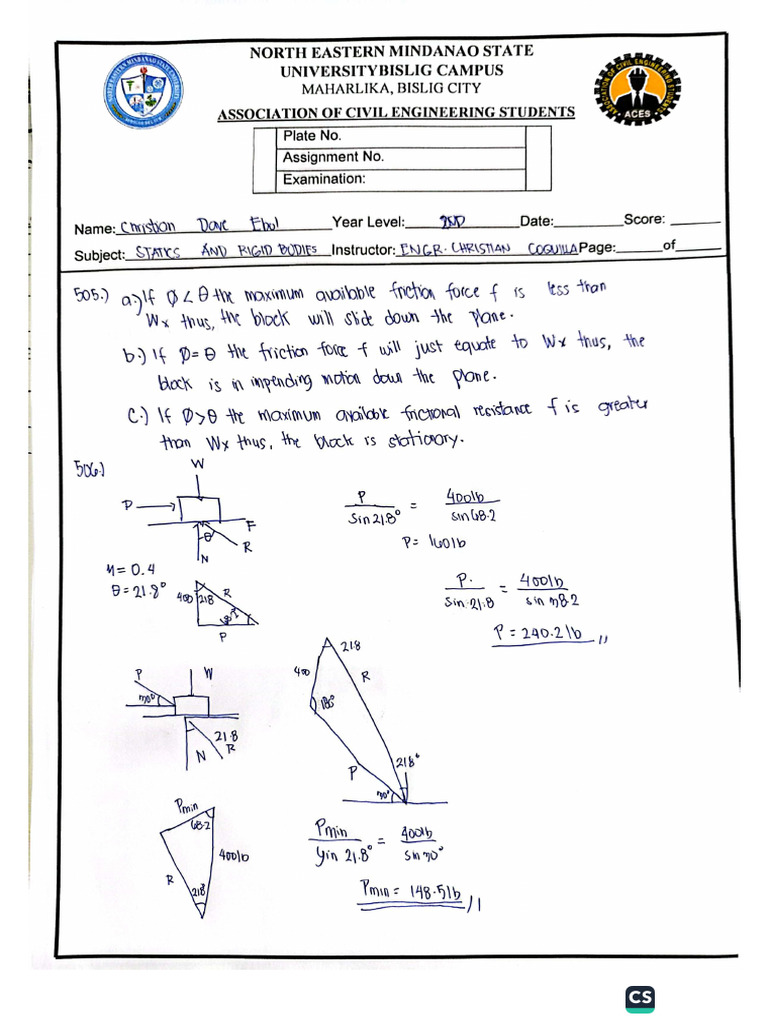 NORTH EASTERN MINDANAO STATE
UNIVERSITYBISLIG CAMPUS
MAHARLIKA, BISLIG CITY
ASSOCIATION OF CIVIL ENGINEERING STUDENTS
NORTH EASTERN MINDANAO STATE UNIVERSITY
ASSOCIATION OF CIVIL ENGINEERING STUDENTS
ACES
Plate No.
Assignment No.
Examination:
Name: Christian Dave Ebol Year Level: 2ND Date: Score:
Subject: STATICS AND RIGID BODIES Instructor: ENGR. CHRISTIAN COQUILLA Page: of
505.) a.) If Ø < θ the maximum available friction force f is less than
Wx thus, the block will slide down the plane.
b.) If Ø = θ the friction force f will just equate to Wx thus, the
block is in inpending motion down the plane.
c.) If Ø > θ the maximum available frictional resistance f is greater
than Wx thus, the block is stationary.
506.)
W
P
F
θ
R
N
P/sin 21.8° = 400lb/sin 68.2
P = 160lb
M = 0.4
θ = 21.8°
400
21.8
R
P
P/sin 21.8 = 400lb/sin 38.2
P = 240.2 lb //
P
W
30°
21.8
R
N
21.8
400
R
P
21.8°
30°
Pmin
68.2
400lb
R
21.8
Pmin/sin 21.8° = 400lb/sin 90°
Pmin = 148.5lb //
CS